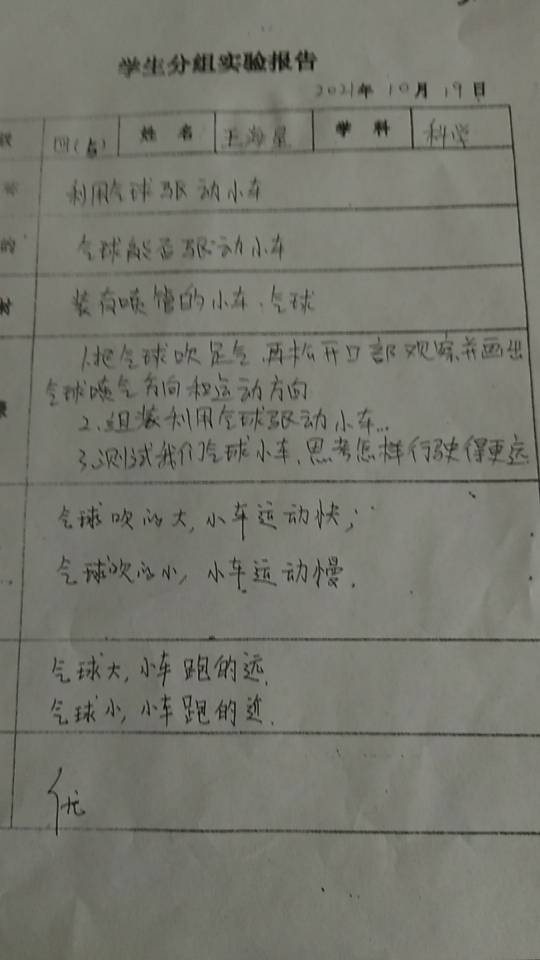 学生分组实验报告
2021年 10月 19日
姓名 王海星 学科 科学
利用气球驱动小车
的 气球能否驱动小车
材 装有喷管的小车、气球
1.把气球吹足气,再松开口部观察并画出
气球喷气方向和运动方向
2.组装利用气球驱动小车...
3.测试我们气球小车,思考怎样行驶得更远
气球吹的大,小车运动快;
气球吹的小,小车运动慢.
气球大,小车跑的远.
气球小,小车跑的近.
优